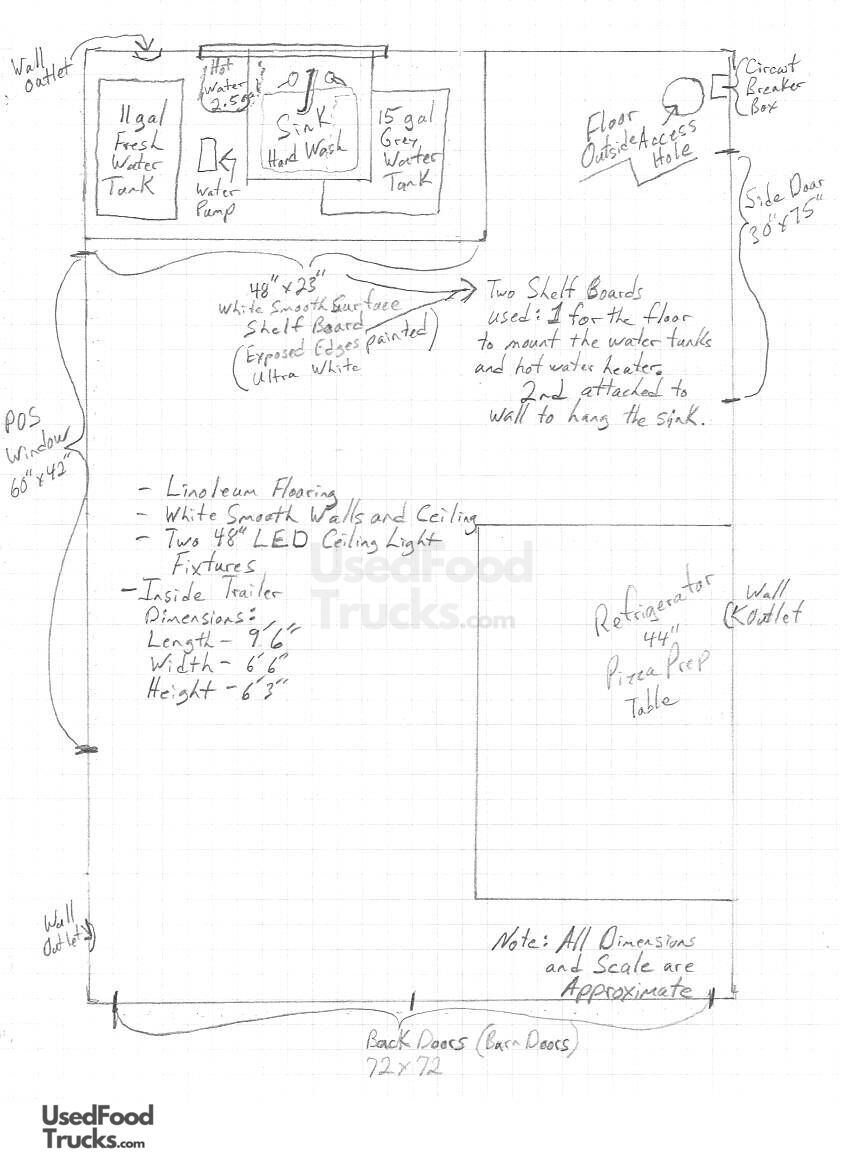 Wall
Outlet
11 gal
Fresh
Water
Tank
Hot
Water
2.5 gal
Water
Pump
Sink
Hand Wash
15 gal
Grey
Water
Tank
Floor
Outside Access
Hole
Circuit
Breaker
Box
Side Door
30" x 75"
48" x 23"
White Smooth Surface
Shelf Board
(Exposed Edges painted)
Ultra White
Two Shelf Boards
used: 1 for the floor
to mount the water tanks
and hot water heater.
2nd attached to
wall to hang the sink.
POS
Window
60" x 42"
- Linoleum Flooring
- White Smooth Walls and Ceiling
- Two 48" LED Ceiling Light
Fixtures
- Inside Trailer
Dimensions:
Length - 9'6"
Width - 6'6"
Height - 6'3"
UsedFood
Trucks.com
Refrigerator
44"
Pizza Prep
Table
Wall
Outlet
Wall
Outlet
Note: All Dimensions
and Scale are
Approximate
Back Doors (Barn Doors)
72 x 72
UsedFood
Trucks.com